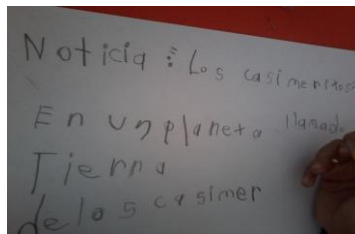 Noticia: Los casimeritos
En un planeta llamado
Tierra
de los casimer